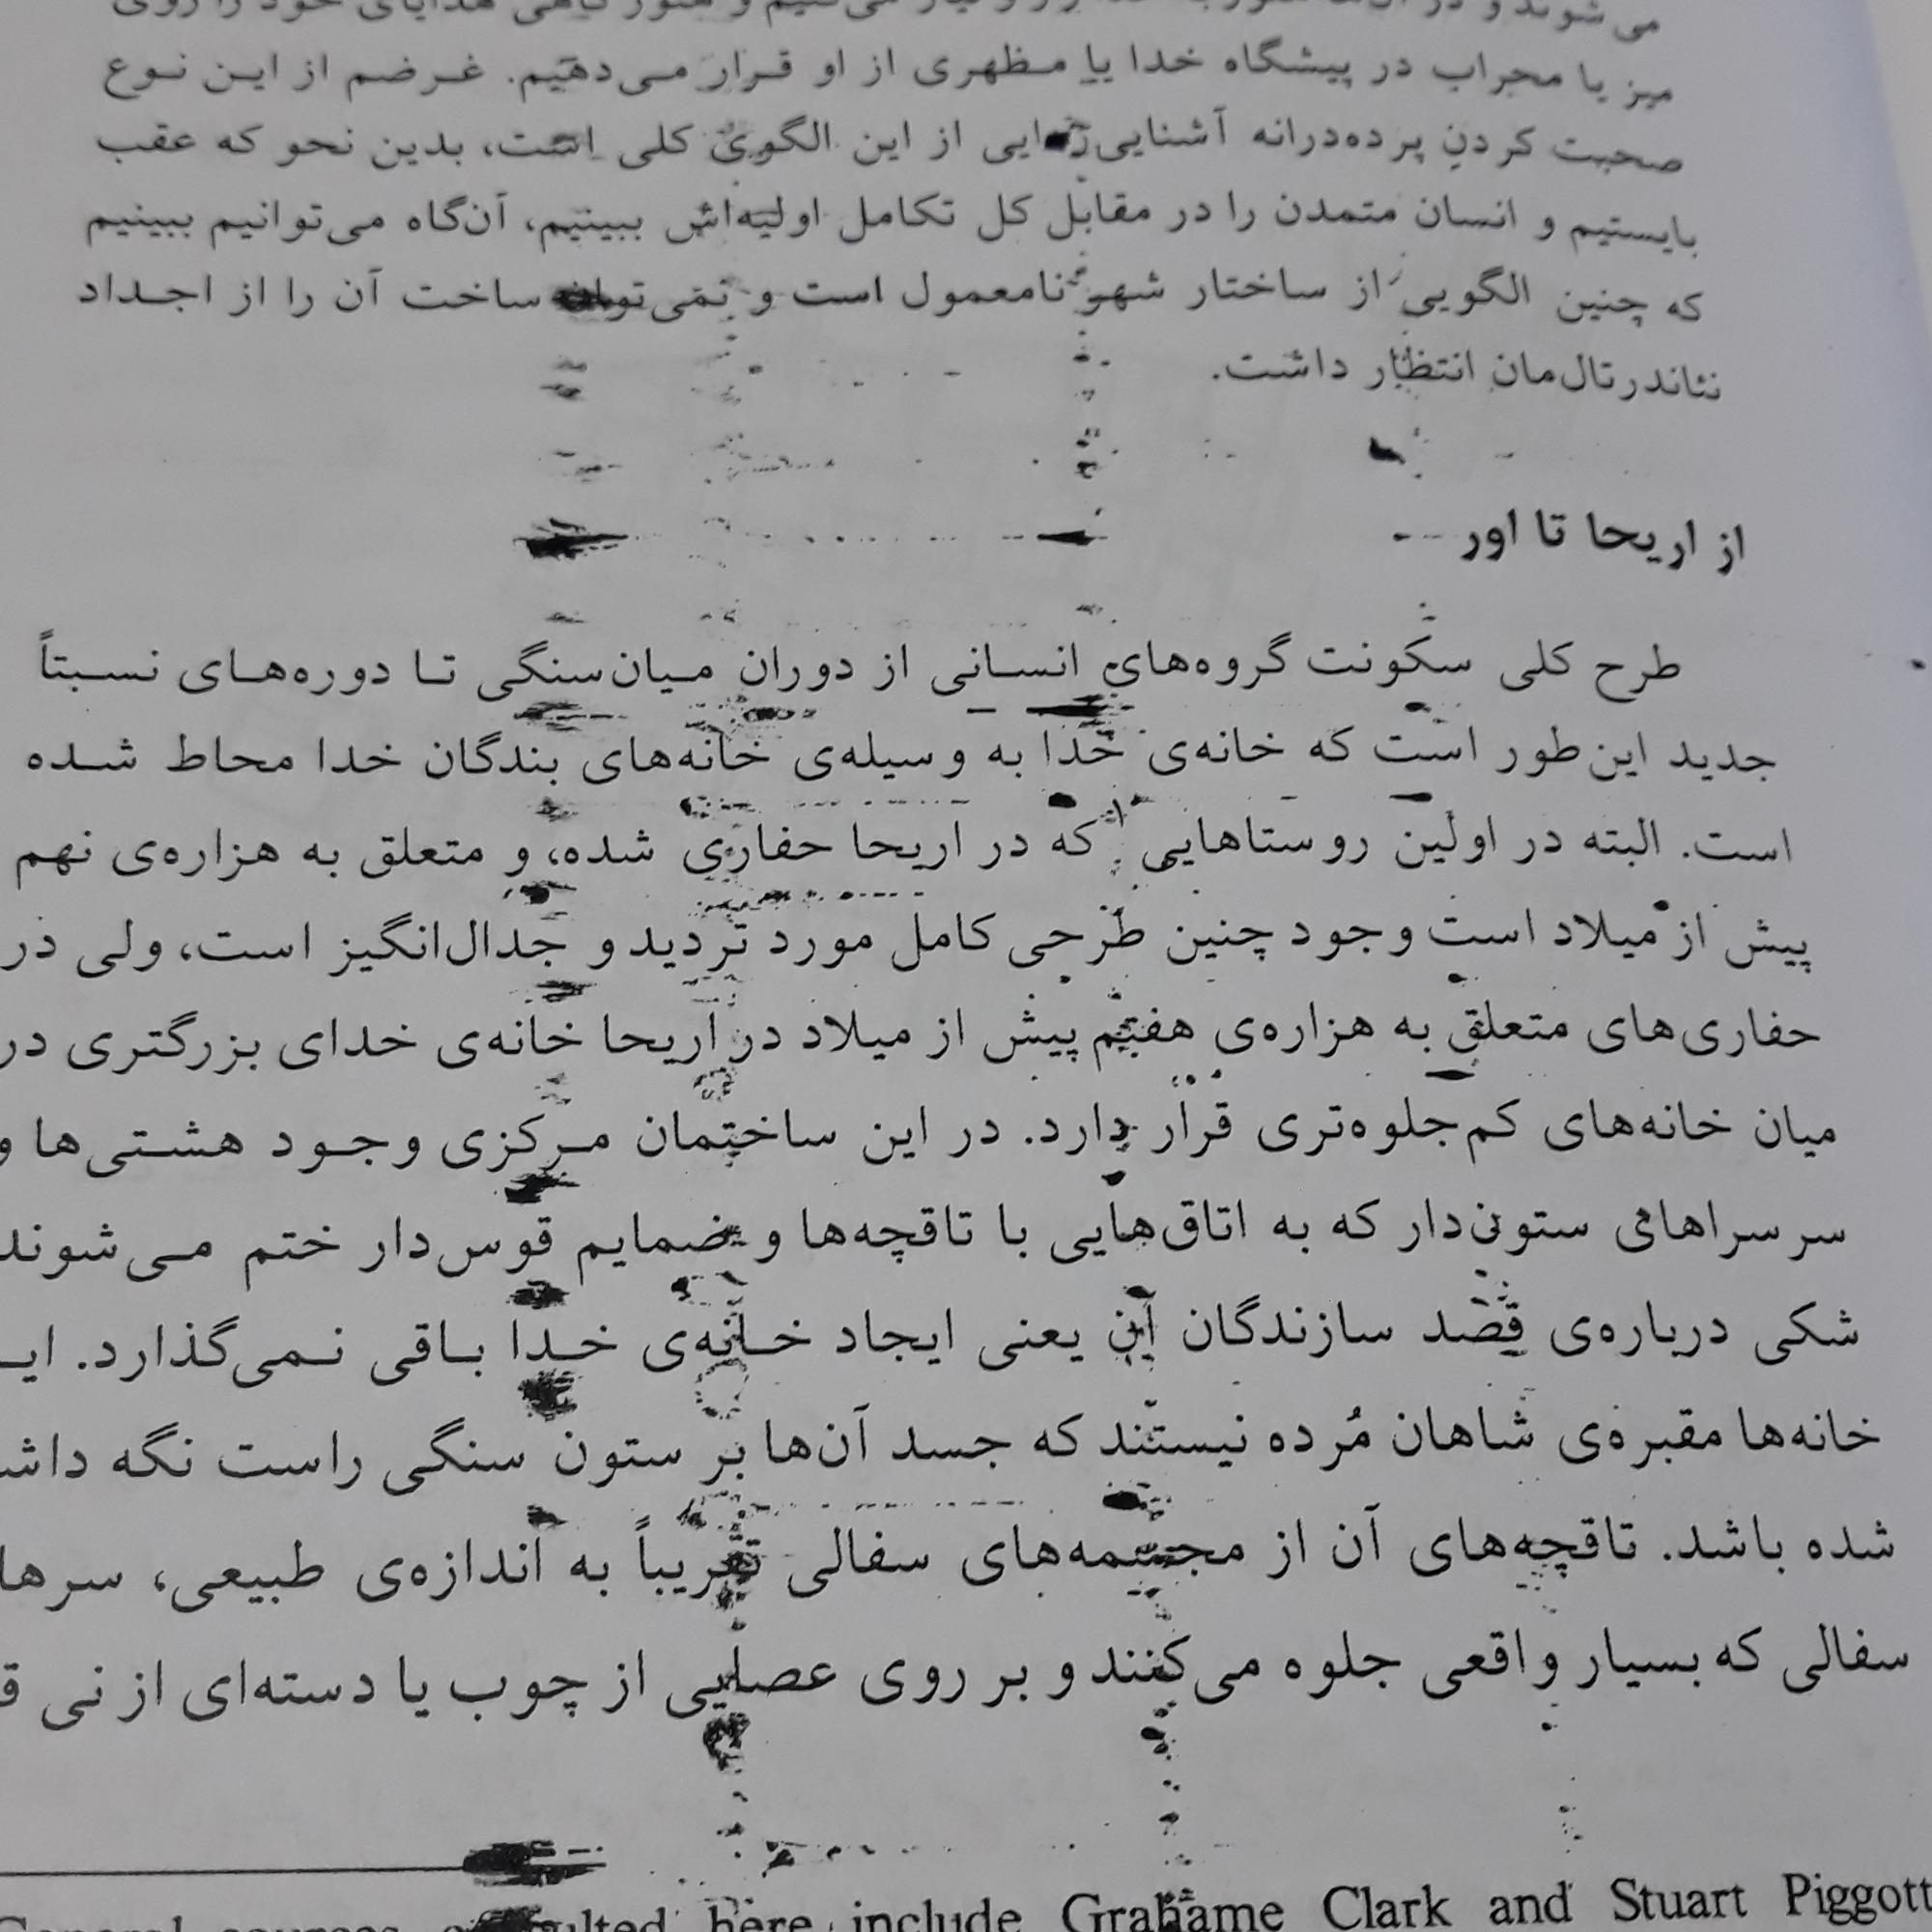 می‌شوند و در
میز یا محراب در پیشگاه خدا یا مظهری از او قرار می‌دهیم. غرضم از این نوع
صحبت کردنِ پرده‌درانه آشنایی‌زدایی از این الگوی کلی است، بدین نحو که عقب
بایستیم و انسان متمدن را در مقابل کل تکامل اولیه‌اش ببینیم، آن‌گاه می‌توانیم ببینیم
که چنین الگویی از ساختار شهر نامعمول است و نمی‌توان ساخت آن را از اجداد
نئاندرتال‌مان انتظار داشت.
از اریحا تا اور
طرح کلی سکونت گروه‌های انسانی از دوران میان‌سنگی تا دوره‌های نسبتاً
جدید این‌طور است که خانه‌ی خدا به وسیله‌ی خانه‌های بندگان خدا محاط شده
است. البته در اولین روستاهایی که در اریحا حفاری شده، و متعلق به هزاره‌ی نهم
پیش از میلاد است وجود چنین طرحی کامل مورد تردید و جدال‌انگیز است، ولی در
حفاری‌های متعلق به هزاره‌ی هفتم پیش از میلاد در اریحا خانه‌ی خدای بزرگتری در
میان خانه‌های کم‌جلوه‌تری قرار دارد. در این ساختمان مرکزی وجود هشتی‌ها و
سرسراهای ستون‌دار که به اتاق‌هایی با تاقچه‌ها و ضمایم قوس‌دار ختم می‌شوند
شکی درباره‌ی قصد سازندگان آن یعنی ایجاد خانه‌ی خدا باقی نمی‌گذارد.
خانه‌ها مقبره‌ی شاهان مُرده نیستند که جسد آن‌ها بر ستون سنگی راست نگه
شده باشد. تاقچه‌های آن از مجسمه‌های سفالی تقریباً به اندازه‌ی طبیعی، سرها
سفالی که بسیار واقعی جلوه می‌کنند و بر روی عصایی از چوب یا دسته‌ای از نی
General sources consulted here include Grahame Clark and Stuart Piggott